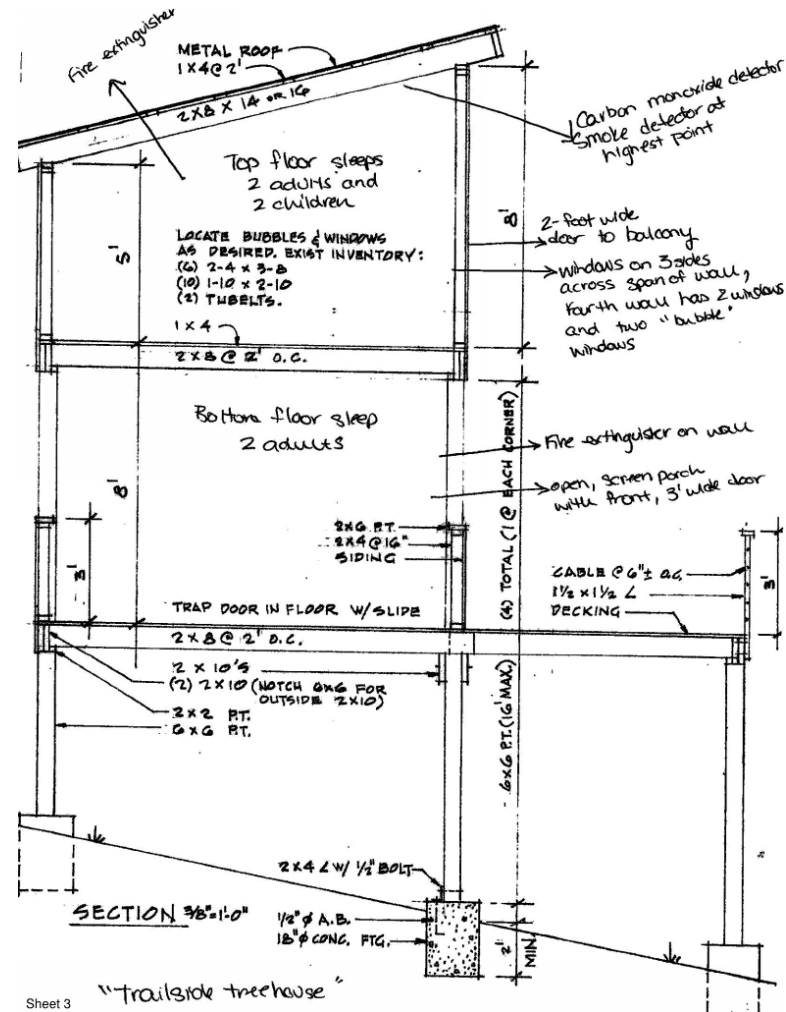 Fire extinguisher
METAL ROOF
1X4@2'
2X8 X 14 OR 16
Carbon monoxide detector
Smoke detector at
highest point
Top floor sleeps
2 adults and
2 children
5'
8'
LOCATE BUBBLES & WINDOWS
AS DESIRED. EXIST INVENTORY:
(6) 2-4 x 3-8
(10) 1-10 x 2-10
(2) TUBELTS.
2-foot wide
door to balcony
windows on 3 sides
across span of wall,
fourth wall has 2 windows
and two "bubble"
windows
1 X 4
2X8@2' O.C.
Bottom floor sleep
2 adults
Fire extinguisher on wall
open, screen porch
with front, 3' wide door
8'
(4) TOTAL (1 @ EACH CORNER)
2X6 P.T.
2X4@16"
SIDING
3'
CABLE @ 6"± O.C.
1½ X 1½ ∠
DECKING
3'
TRAP DOOR IN FLOOR W/SLIDE
2X8@2' O.C.
2 X 10'S
(2) 2X10 (NOTCH 6X6 FOR
OUTSIDE 2X10)
2X2 P.T.
6X6 P.T.
6X6 P.T. (16' MAX.)
2X4 ∠ W/ ½" BOLT
SECTION 3/8"=1'-0"
1/2" ⌀ A.B.
18" ⌀ CONC. FTG.
2'
MIN.
"Trailside treehouse"
Sheet 3